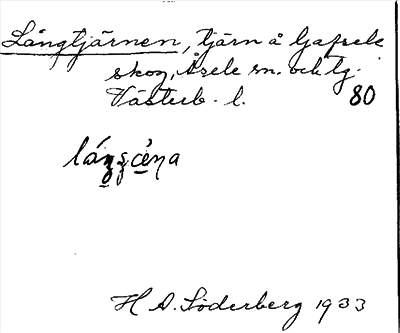 Långtjärnen, tjärn å Gafsele
skog, Åsele sn. och tg.
Västerb. l. 80
H A. Söderberg 1933